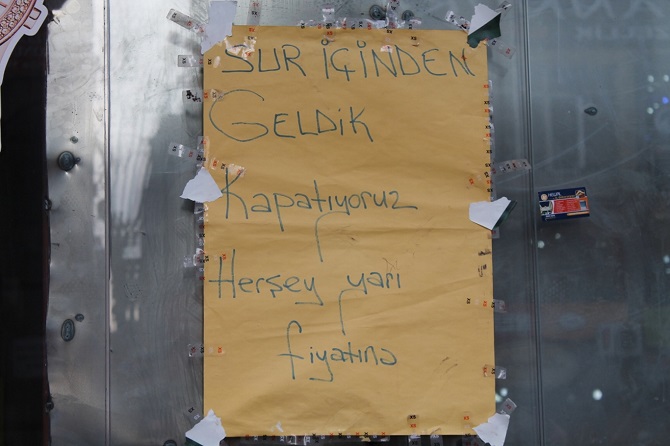 SUR İÇİNDEN
GELDİK
Kapatıyoruz
Herşey yarı
fiyatına